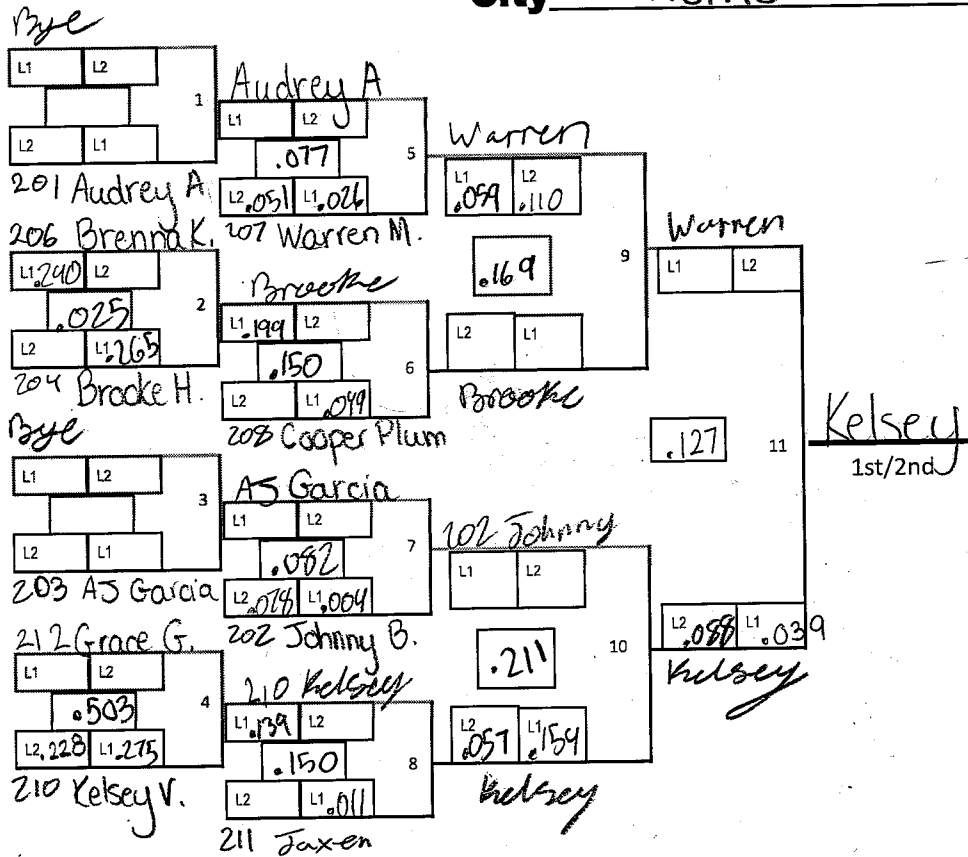 City
Bye
L1 L2
1
L2 L1
201 Audrey A.
206 Brenna K.
L1 .240 L2
.025
2
L2 L1 .265
204 Brooke H.
Bye
L1 L2
3
L2 L1
203 AJ Garcia
212 Grace G.
L1 L2
.503
4
L2 .228 L1 .275
210 Kelsey V.
Audrey A
L1 L2
.077
5
L2 .051 L1 .026
207 Warren M.
Brooke
L1 .199 L2
.150
6
L2 L1 .049
208 Cooper Plum
AJ Garcia
L1 L2
.082
7
L2 .078 L1 .004
202 Johnny B.
210 Kelsey
L1 .139 L2
.150
8
L2 L1 .011
211 Jaxen
Warren
L1 .059 L2 .110
.169
9
L2 L1
Brooke
202 Johnny
L1 L2
.211
10
L2 .057 L1 .154
Kelsey
Warren
L1 L2
.127
11
L2 .088 L1 .039
Kelsey
Kelsey
1st/2nd